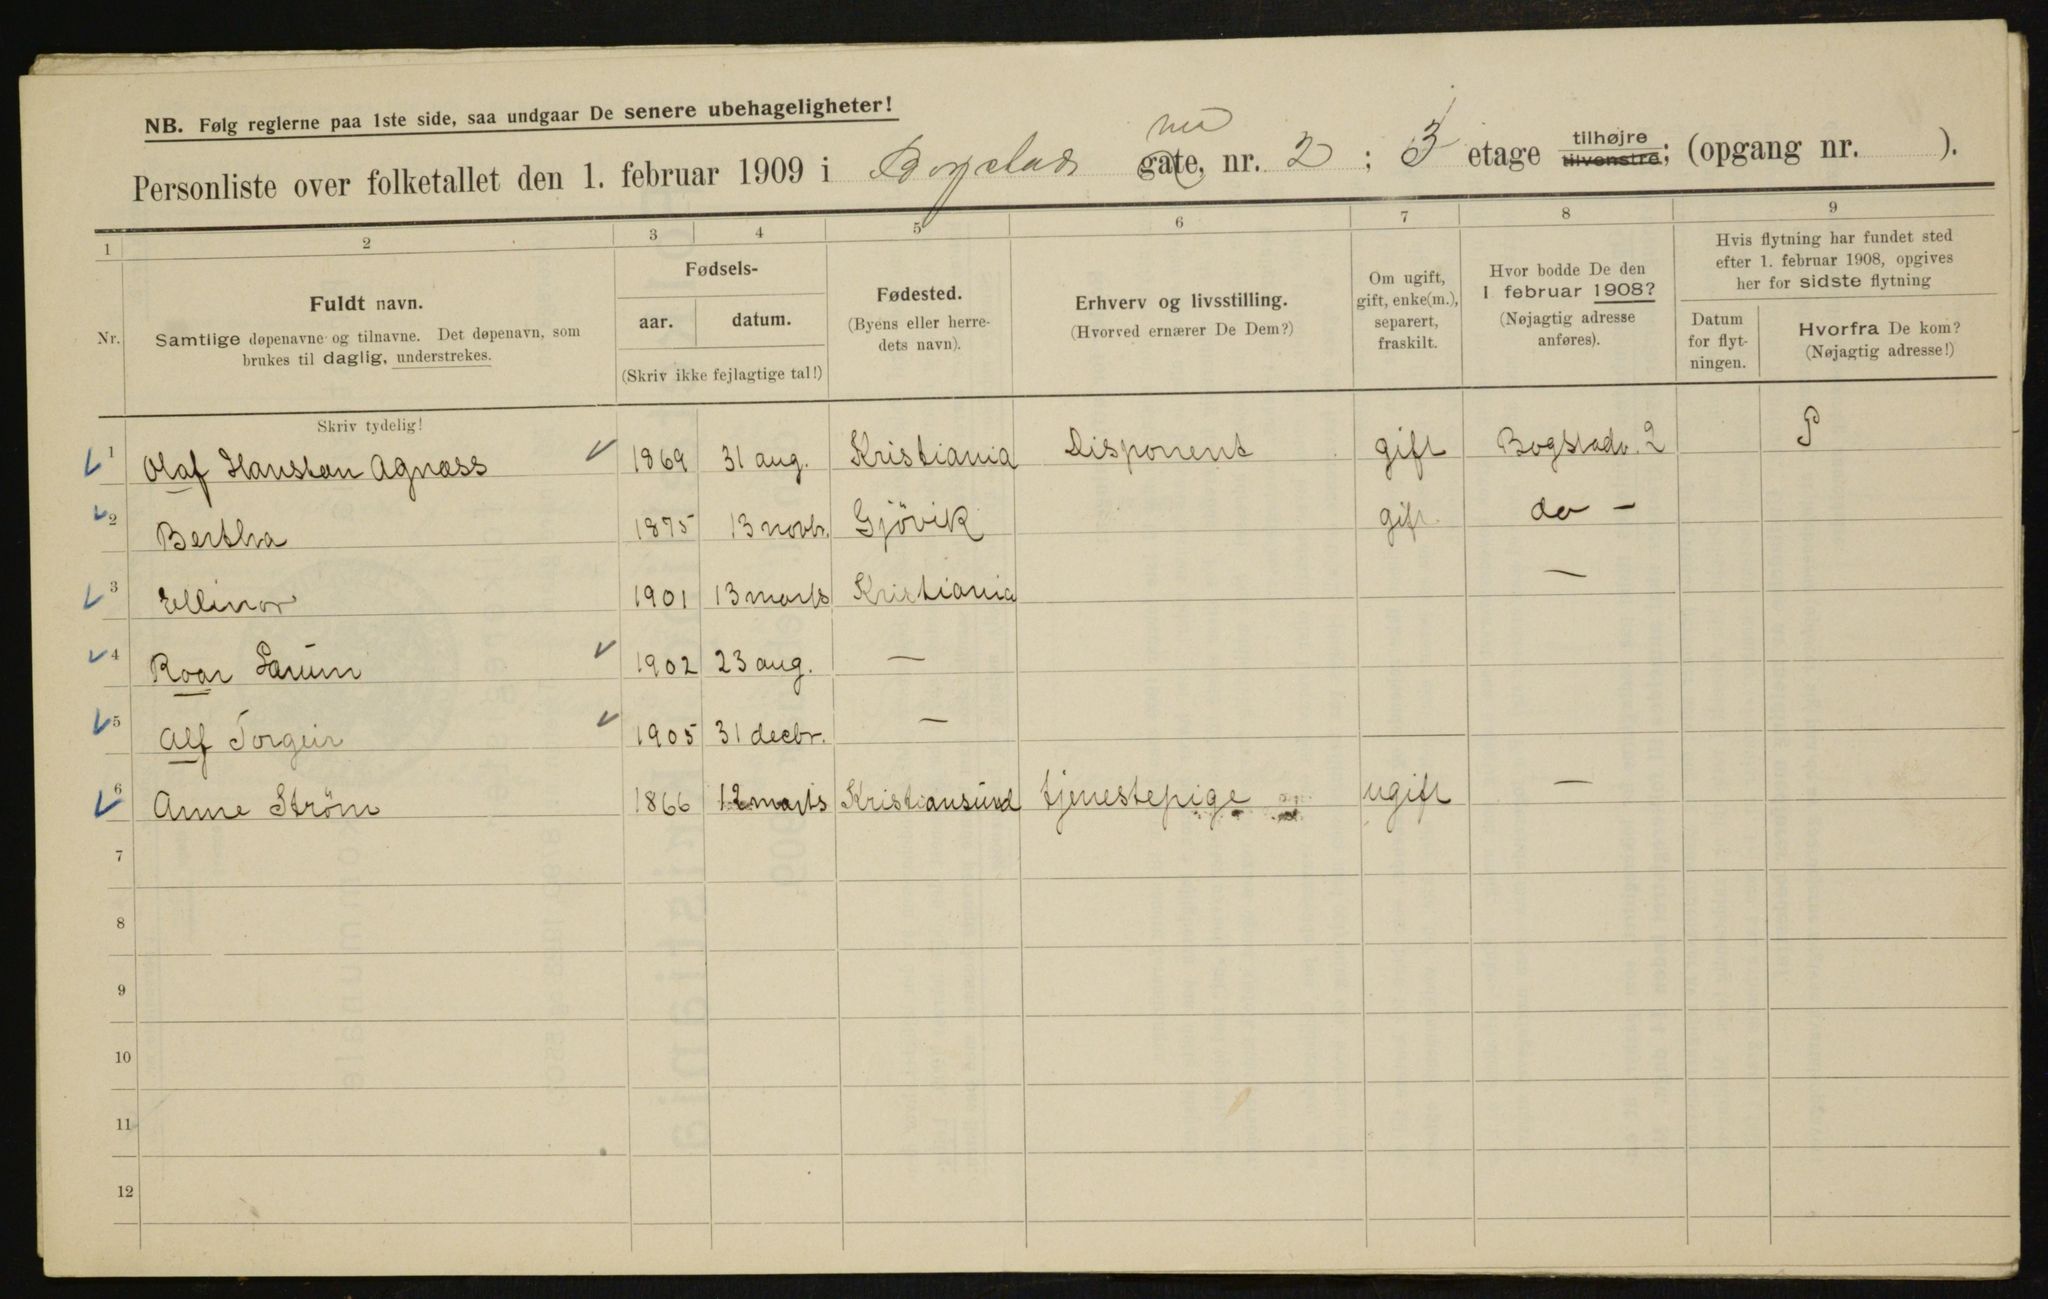 NB. Følg reglerne paa 1ste side, saa undgaar De senere ubehageligheter!
Personliste over folketallet den 1. februar 1909 i Bogstad gate, nr. 2 ; 3 etage tilhøjre tilvenstre; (opgang nr. ).
1 2 3 4 5 6 7 8 9
Nr.
Fuldt navn.
Samtlige døpenavne og tilnavne. Det døpenavn, som
brukes til daglig, understrekes.
Fødsels-
aar. datum.
(Skriv ikke fejlagtige tal!)
Fødested.
(Byens eller herre-
dets navn).
Erhverv og livsstilling.
(Hvorved ernærer De Dem?)
Om ugift,
gift, enke(m.),
separert,
fraskilt.
Hvor bodde De den
1 februar 1908?
(Nøjagtig adresse
anføres).
Hvis flytning har fundet sted
efter 1. februar 1908, opgives
her for sidste flytning
Datum
for flyt-
ningen.
Hvorfra De kom?
(Nøjagtig adresse!)
Skriv tydelig!
1 Olaf Hansten Agnæss 1869 31 aug. Kristiania Disponent gift Bogstadv. 2
2 Bertha 1875 13 novbr. Gjövik gift do —
3 Ellinor 1901 13 marts Kristiania —
4 Roar Lærum 1902 23 aug. —
5 Alf Torgeir 1905 31 decbr. —
6 Anne Ström 1866 12 marts Kristiansund tjenestepige ugift —
7
8
9
10
11
12